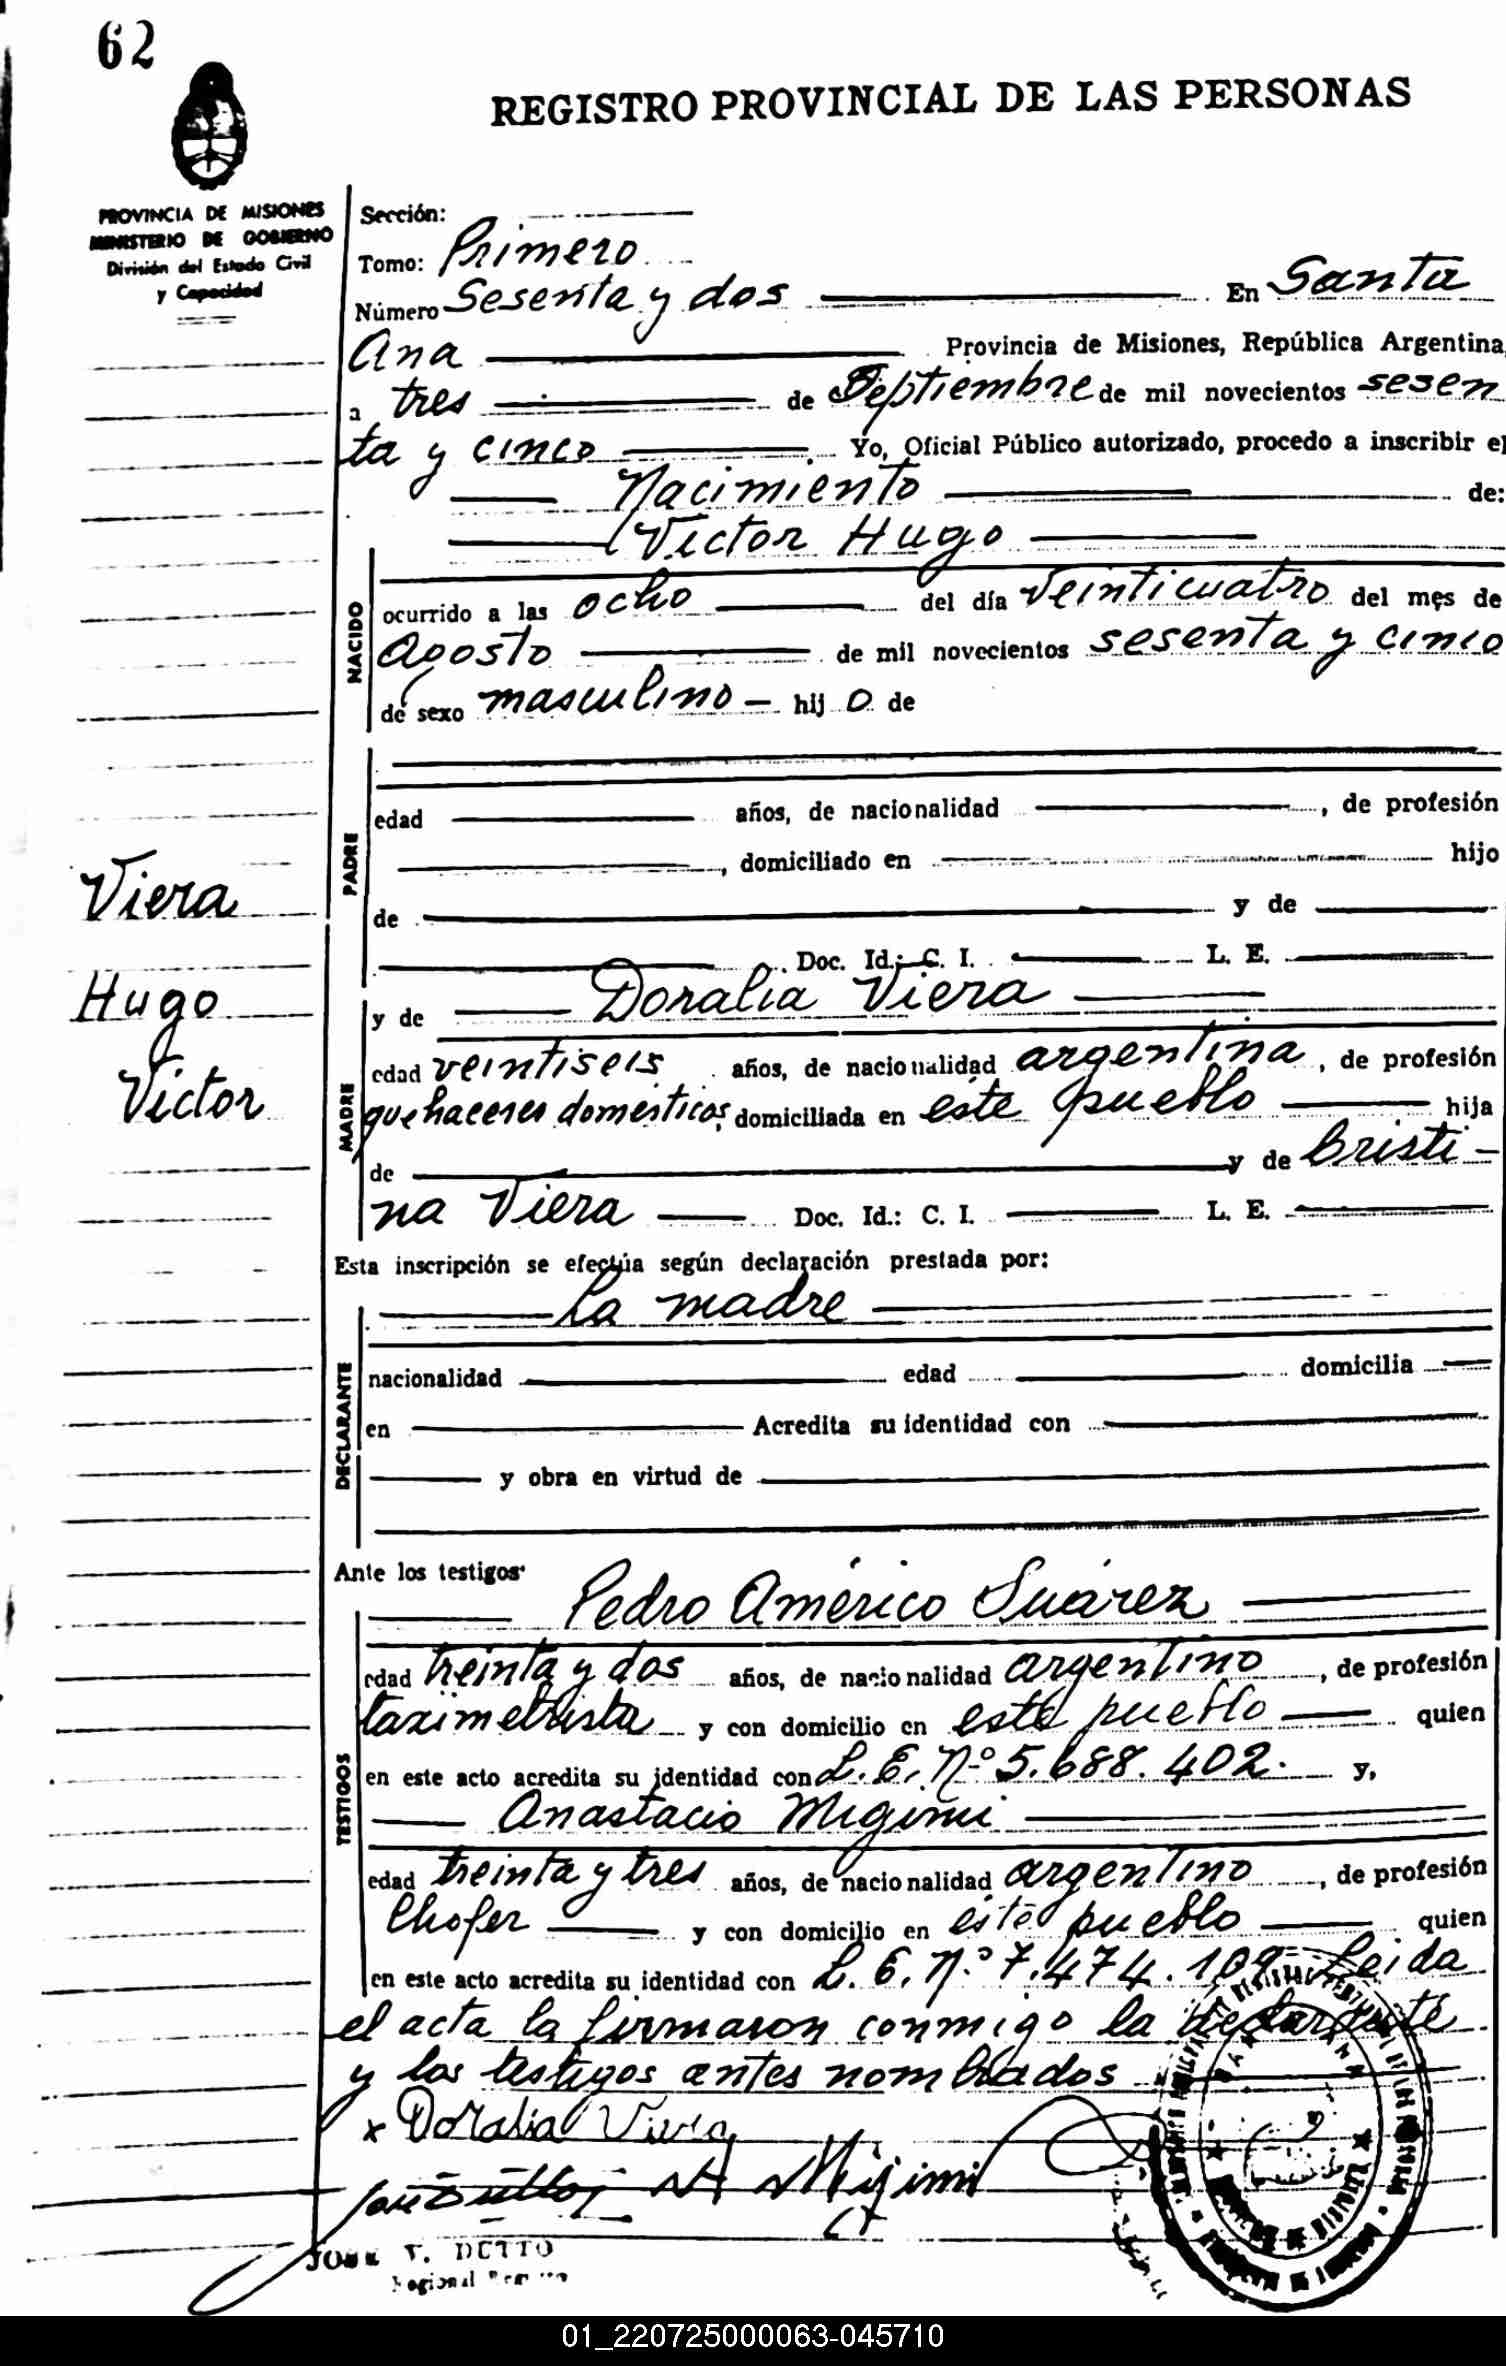 62
REGISTRO PROVINCIAL DE LAS PERSONAS
PROVINCIA DE MISIONES
MINISTERIO DE GOBIERNO
División del Estado Civil
y Capacidad
Sección:
Tomo: Primero
Número Sesenta y dos En Santa
Ana Provincia de Misiones, República Argentina,
a tres de Septiembre de mil novecientos sesen
ta y cinco Yo, Oficial Público autorizado, procedo a inscribir el
Nacimiento de:
Victor Hugo
NACIDO
ocurrido a las ocho del día veinticuatro del mes de
Agosto de mil novecientos sesenta y cinco
de sexo masculino - hij o de
PADRE
edad años, de nacionalidad , de profesión
, domiciliado en hijo
de y de
Doc. Id.: C. I. L. E.
Viera
Hugo
Victor
MADRE
y de Doralia Viera
edad veintiseis años, de nacionalidad argentina, de profesión
quehaceres domésticos, domiciliada en este pueblo hija
de y de Cristi-
na Viera Doc. Id.: C. I. L. E.
Esta inscripción se efectúa según declaración prestada por:
La madre
DECLARANTE
nacionalidad edad domicilia
en Acredita su identidad con
y obra en virtud de
Ante los testigos
Pedro Américo Suárez
TESTIGOS
edad treinta y dos años, de nacionalidad argentino, de profesión
taximetrista y con domicilio en este pueblo quien
en este acto acredita su identidad con L. E. Nº 5.688.402. y,
Anastacio Migimi
edad treinta y tres años, de nacionalidad argentino, de profesión
Chofer y con domicilio en este pueblo quien
en este acto acredita su identidad con L. E. N.º 7.474.109 Leida
el acta la firmaron conmigo la declarante
y los testigos antes nombrados
x Doralia Viera
Migimi
JOSE V. DETTO
01_220725000063-045710